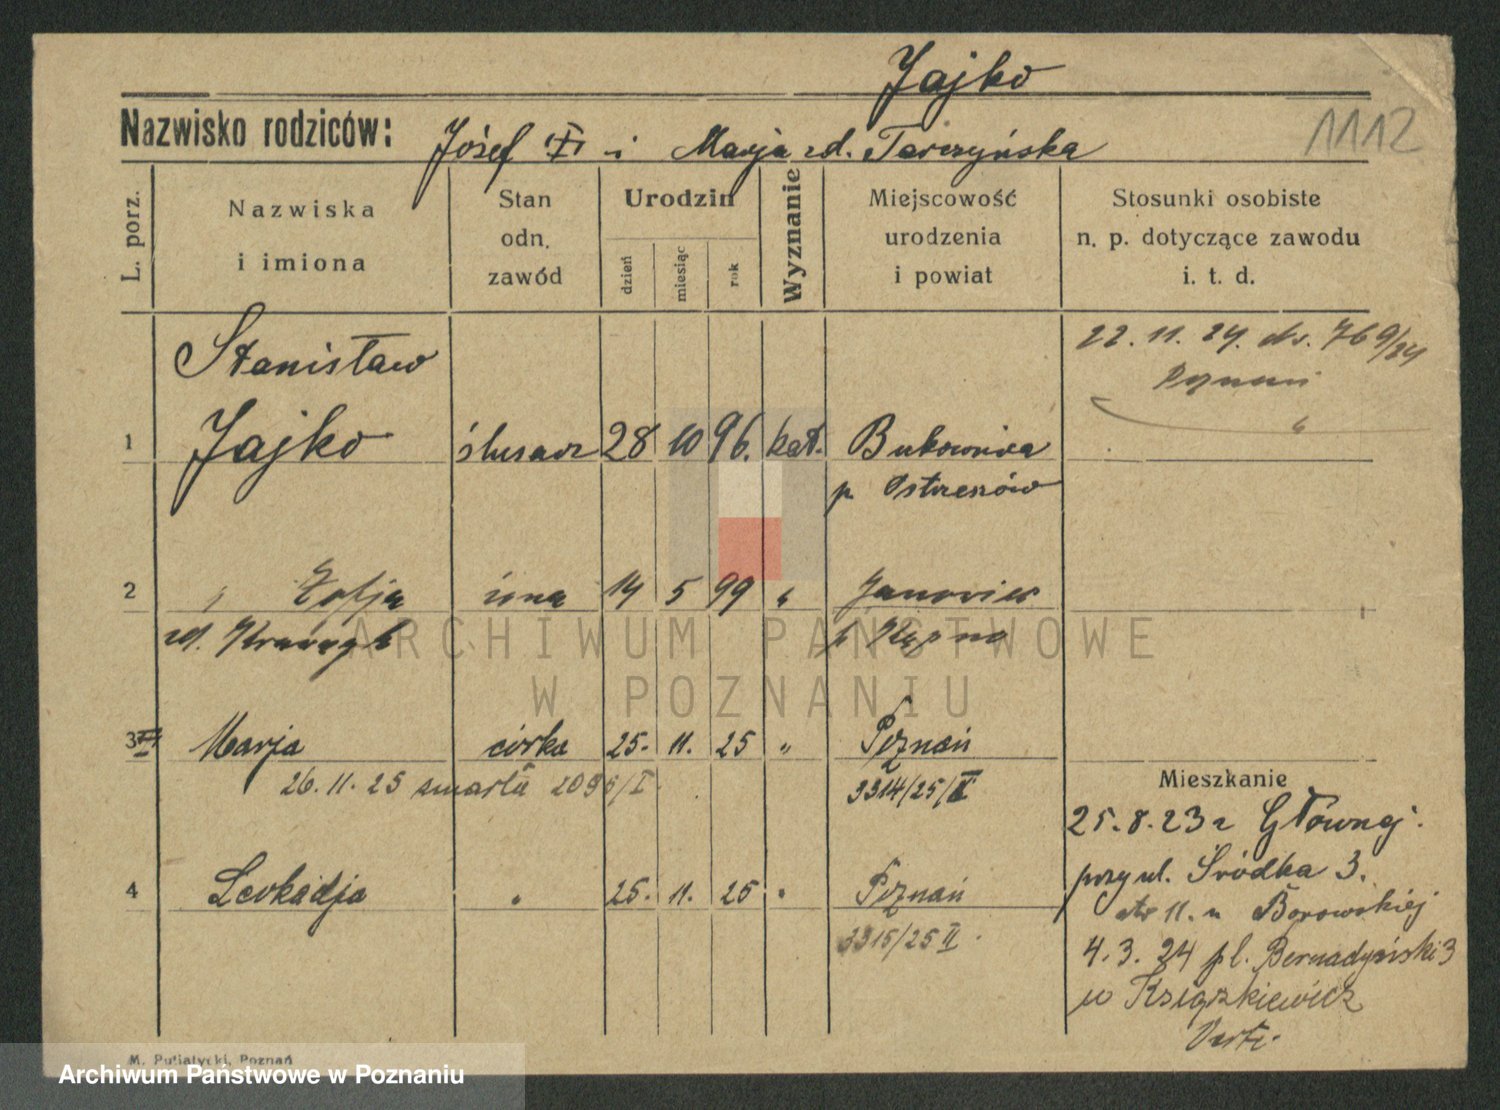 Jajko
1112
Nazwisko rodziców: Józef i Marja zd. Tarczyńska
L. porz.
Nazwiska i imiona
Stan odn. zawód
Urodzin
dzień miesiąc rok
Wyznanie
Miejscowość urodzenia i powiat
Stosunki osobiste n. p. dotyczące zawodu i. t. d.
Stanisław
22. 11. 24. 769/24
Poznań
1 Jajko ślusarz 28 10 96. kat. Bukownica
p Ostrzeszów
2 " Zofja żona 14 5 99 " Janowiec
zd. p Kępno
ARCHIWUM PAŃSTWOWE
W POZNANIU
3 Marja córka 25. 11. 25 " Poznań
26. 11. 25 zmarła 2096/I 3314/25/II
Mieszkanie
25. 8. 23 z Głównej.
przy ul. Śródka 3.
4 Leokadja " 25. 11. 25 " Poznań
11. u Borowskiej
3315/25 II
4. 3. 24 pl. Bernadyński 3
u Księżkiewicz
Verte
M. Putiatycki, Poznań
Archiwum Państwowe w Poznaniu